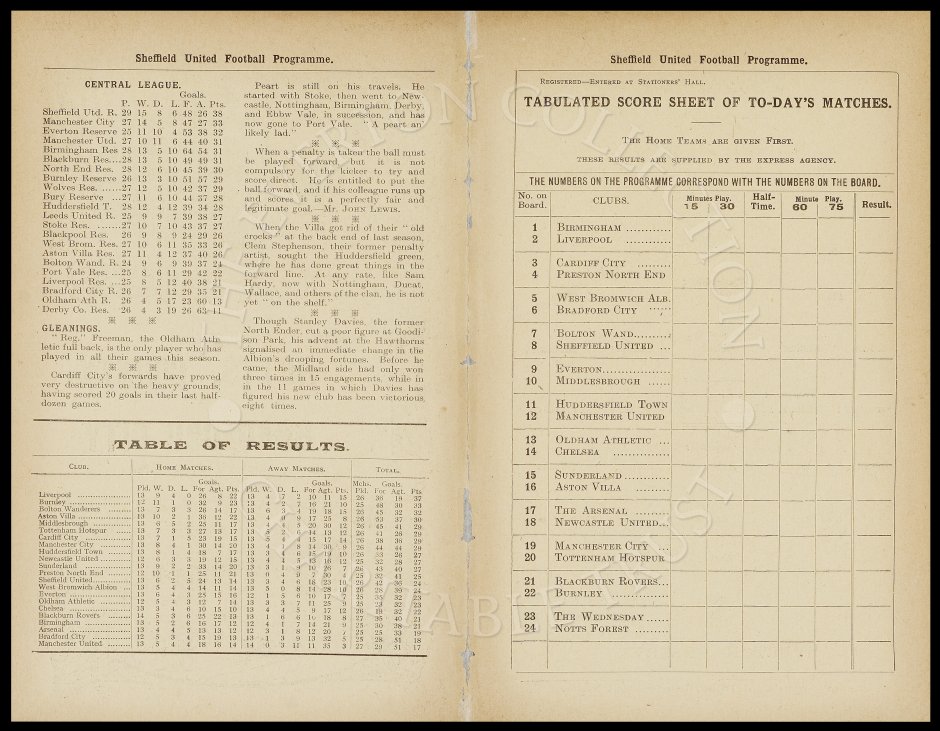 Sheffield United Football Programme.
CENTRAL LEAGUE.
Goals.
P. W. D. L. F. A. Pts.
Sheffield Utd. R. 29 15 8 6 48 26 38
Manchester City 27 14 5 8 47 27 33
Everton Reserve 25 11 10 4 53 38 32
Manchester Utd. 27 10 11 6 44 40 31
Birmingham Res 28 13 5 10 64 54 31
Blackburn Res....28 13 5 10 49 49 31
North End Res. 28 12 6 10 45 39 30
Burnley Reserve 26 13 3 10 51 57 29
Wolves Res. .......27 12 5 10 42 37 29
Bury Reserve ...27 11 6 10 44 37 28
Huddersfield T. 28 12 4 12 39 34 28
Leeds United R. 25 9 9 7 39 38 27
Stoke Res. .......27 10 7 10 43 37 27
Blackpool Res. 26 9 8 9 24 29 26
West Brom. Res. 27 10 6 11 35 33 26
Aston Villa Res. 27 11 4 12 37 40 26
Bolton Wand. R. 24 9 6 9 39 37 24
Port Vale Res. ...25 8 6 11 29 42 22
Liverpool Res. ...25 8 5 12 40 38 21
Bradford City R. 26 7 7 12 29 35 21
Oldham Ath R. 26 4 5 17 23 60 13
Derby Co. Res. 26 4 3 19 26 63 11
GLEANINGS.
"Reg." Freeman, the Oldham Ath-
letic full back, is the only player who has
played in all their games this season.
Cardiff City's forwards have proved
very destructive on the heavy grounds,
having scored 20 goals in their last half-
dozen games.
Peart is still on his travels. He
started with Stoke, then went to New-
castle, Nottingham, Birmingham, Derby,
and Ebbw Vale, in succession, and has
now gone to Port Vale. "A peart an'
likely lad."
When a penalty is taken the ball must
be played forward, but it is not
compulsory for the kicker to try and
score direct. He is entitled to put the
ball forward, and if his colleague runs up
and scores it is a perfectly fair and
legitimate goal.—Mr. JOHN LEWIS.
When the Villa got rid of their "old
crocks" at the back end of last season,
Clem Stephenson, their former penalty
artist, sought the Huddersfield green,
where he has done great things in the
forward line. At any rate, like Sam
Hardy, now with Nottingham, Ducat,
Wallace, and others of the clan, he is not
yet "on the shelf."
Though Stanley Davies, the former
North Ender, cut a poor figure at Goodi-
son Park, his advent at the Hawthorns
signalised an immediate change in the
Albion's drooping fortunes. Before he
came, the Midland side had only won
three times in 15 engagements, while in
in the 11 games in which Davies has
figured his new club has been victorious
eight times.
TABLE OF RESULTS.
CLUB. HOME MATCHES. AWAY MATCHES. TOTAL.
Goals. Goals. Mchs. Goals.
Pld. W. D. L. For Agt. Pts. Pld. W. D. L. For Agt. Pts. Pld. For Agt. Pts
Liverpool 13 9 4 0 26 8 22 13 4 7 2 10 11 15 26 36 19 37
Burnley 12 11 1 0 32 9 23 13 4 2 7 16 21 10 25 48 30 33
Bolton Wanderers 13 7 3 3 26 14 17 13 6 3 4 19 18 15 26 45 32 32
Aston Villa 13 10 2 1 36 12 22 13 4 0 9 17 25 8 26 53 37 30
Middlesbrough 13 6 5 2 25 11 17 13 4 4 5 20 30 12 26 45 41 29
Tottenham Hotspur 13 7 3 3 27 13 17 13 5 2 6 14 13 12 26 41 26 29
Cardiff City 13 7 1 5 23 19 15 13 5 4 4 15 17 14 26 38 36 29
Manchester City 13 8 4 1 30 14 20 13 4 1 8 14 30 9 26 44 44 29
Huddersfield Town 13 8 1 4 18 7 17 13 3 4 6 15 19 10 26 33 26 27
Newcastle United 12 6 3 3 19 12 15 13 4 4 5 13 16 12 25 32 28 27
Sunderland 13 9 2 2 33 14 20 13 3 1 9 10 26 7 26 43 40 27
Preston North End 12 10 1 1 25 11 21 13 0 4 9 7 30 4 25 32 41 25
Sheffield United 13 6 2 5 24 13 14 13 3 4 6 18 23 10 26 42 36 24
West Bromwich Albion 13 5 4 4 14 11 14 13 5 0 8 14 28 10 26 28 39 24
Everton 13 6 4 3 25 15 16 12 1 5 6 10 17 7 25 35 32 23
Oldham Athletic 12 5 4 3 12 7 14 13 3 3 7 11 25 9 25 23 32 23
Chelsea 13 3 4 6 10 15 10 13 4 4 5 9 17 12 26 19 32 22
Blackburn Rovers 14 5 3 6 25 22 13 13 1 6 6 10 18 8 27 35 40 21
Birmingham 13 5 2 6 16 17 12 12 4 1 7 14 21 9 25 30 38 21
Arsenal 13 4 4 5 13 13 12 12 3 1 8 12 20 7 25 25 33 19
Bradford City 12 5 3 4 15 19 13 13 1 3 9 13 32 5 25 28 51 18
Manchester United 13 5 4 4 18 16 14 14 0 3 11 11 35 3 27 29 51 17
Sheffield United Football Programme.
REGISTERED—ENTERED AT STATIONERS' HALL.
TABULATED SCORE SHEET OF TO-DAY'S MATCHES.
THE HOME TEAMS ARE GIVEN FIRST.
THESE RESULTS ARE SUPPLIED BY THE EXPRESS AGENCY.
THE NUMBERS ON THE PROGRAMME CORRESPOND WITH THE NUMBERS ON THE BOARD.
No. on Board. CLUBS. Minutes Play. 15 30 Half-Time. Minute Play. 60 75 Result.
1 BIRMINGHAM
2 LIVERPOOL
3 CARDIFF CITY
4 PRESTON NORTH END
5 WEST BROMWICH ALB.
6 BRADFORD CITY
7 BOLTON WAND.
8 SHEFFIELD UNITED
9 EVERTON
10 MIDDLESBROUGH
11 HUDDERSFIELD TOWN
12 MANCHESTER UNITED
13 OLDHAM ATHLETIC
14 CHELSEA
15 SUNDERLAND
16 ASTON VILLA
17 THE ARSENAL
18 NEWCASTLE UNITED
19 MANCHESTER CITY
20 TOTTENHAM HOTSPUR
21 BLACKBURN ROVERS
22 BURNLEY
23 THE WEDNESDAY
24 NOTTS FOREST